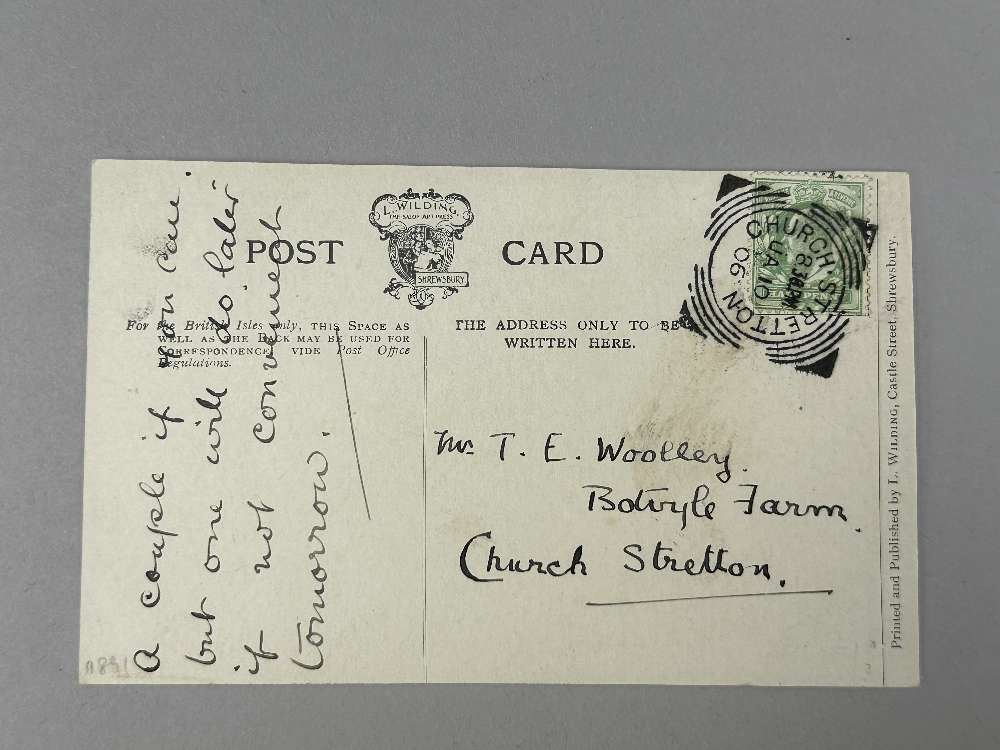 POST CARD
L. WILDING,
THE SALOP ART PRESS
SHREWSBURY
For the British Isles only, THIS SPACE AS
WELL AS THE BACK MAY BE USED FOR
CORRESPONDENCE, VIDE Post Office
Regulations.
THE ADDRESS ONLY TO BE
WRITTEN HERE.
CHURCH STRETTON
8.30AM
JA 10
06
A couple if you can.
but one will do. later
if not convenient
tomorrow.
Mr T. E. Woolley.
Botvyle Farm.
Church Stretton.
Printed and Published by L. WILDING, Castle Street, Shrewsbury.